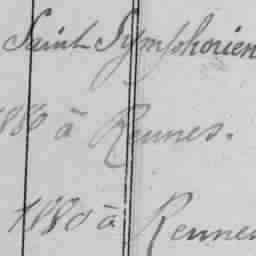 Saint Symphorien
1880 à Rennes.
1880 à Rennes